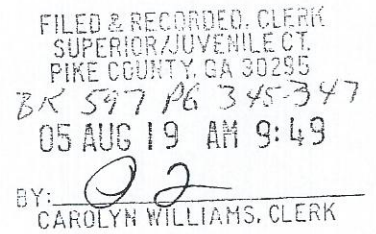 FILED & RECORDED, CLERK
SUPERIOR/JUVENILE CT.
PIKE COUNTY, GA 30295
BK 597 PG 345-347
05 AUG 19 AM 9:49
BY:
CAROLYN WILLIAMS, CLERK